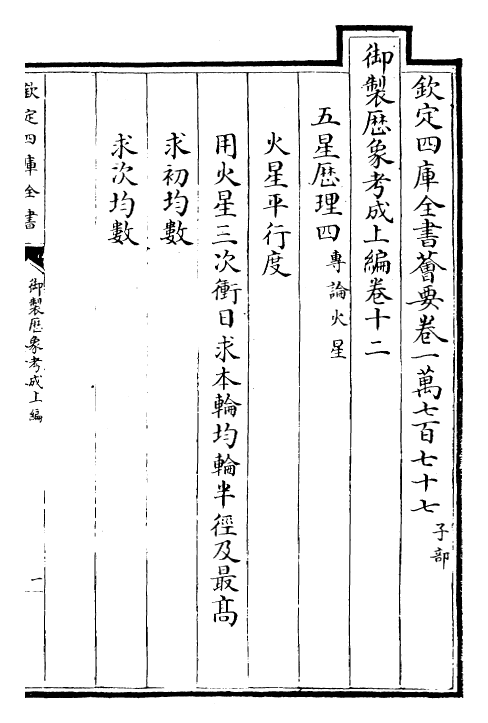 欽定四庫全書薈要卷一萬七百七十七 子部
御製厯象考成上編卷十二
五星厯理四 專論火星
火星平行度
用火星三次衝日求本輪均輪半徑及最髙
求初均數
求次均數
欽定四庫全書
御製厯象考成上編
一